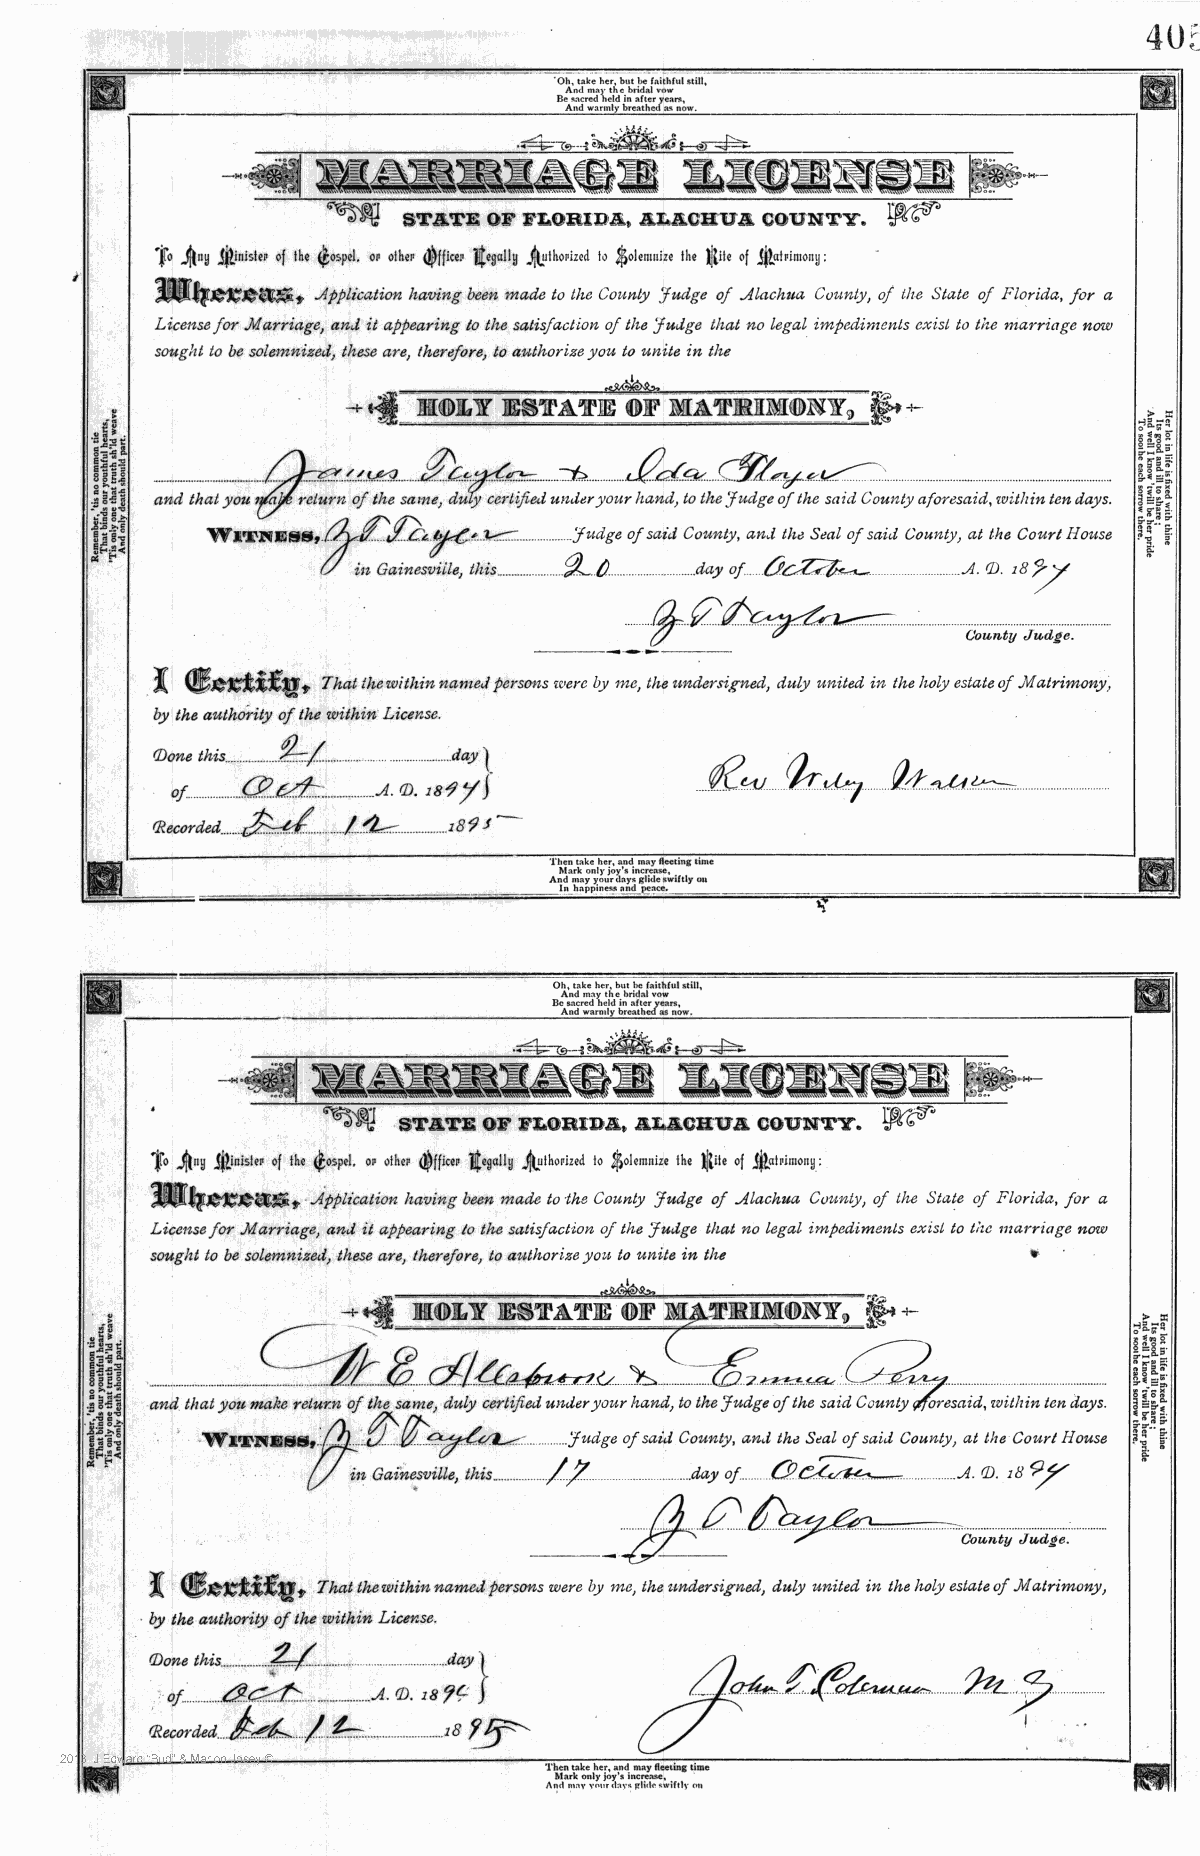 405
Oh, take her, but be faithful still,
And may the bridal vow
Be sacred held in after years,
And warmly breathed as now.
MARRIAGE LICENSE
STATE OF FLORIDA, ALACHUA COUNTY.
To Any Minister of the Gospel, or other Officer Legally Authorized to Solemnize the Rite of Matrimony:
Whereas, Application having been made to the County Judge of Alachua County, of the State of Florida, for a
License for Marriage, and it appearing to the satisfaction of the Judge that no legal impediments exist to the marriage now
sought to be solemnized, these are, therefore, to authorize you to unite in the
HOLY ESTATE OF MATRIMONY,
James Taylor & Ida
and that you make return of the same, duly certified under your hand, to the Judge of the said County aforesaid, within ten days.
WITNESS, Z T Taylor Judge of said County, and the Seal of said County, at the Court House
in Gainesville, this 20 day of October A. D. 1894
Z T Taylor
County Judge.
I Certify, That the within named persons were by me, the undersigned, duly united in the holy estate of Matrimony,
by the authority of the within License.
Done this 21 day
of Oct A. D. 1894
Rev Wiley Walker
Recorded Feb 12 1895
Then take her, and may fleeting time
Mark only joy's increase,
And may your days glide swiftly on
In happiness and peace.
Remember, 'tis no common tie
That binds our youthful hearts,
'Tis only one that truth sh'ld weave
And only death should part.
Her lot in life is fixed with thine
Its good and ill to share;
And well I know 'twill be her pride
To soothe each sorrow there.
Oh, take her, but be faithful still,
And may the bridal vow
Be sacred held in after years,
And warmly breathed as now.
MARRIAGE LICENSE
STATE OF FLORIDA, ALACHUA COUNTY.
To Any Minister of the Gospel, or other Officer Legally Authorized to Solemnize the Rite of Matrimony:
Whereas, Application having been made to the County Judge of Alachua County, of the State of Florida, for a
License for Marriage, and it appearing to the satisfaction of the Judge that no legal impediments exist to the marriage now
sought to be solemnized, these are, therefore, to authorize you to unite in the
HOLY ESTATE OF MATRIMONY,
W E Allsbrook & Emma Perry
and that you make return of the same, duly certified under your hand, to the Judge of the said County aforesaid, within ten days.
WITNESS, Z T Taylor Judge of said County, and the Seal of said County, at the Court House
in Gainesville, this 17 day of October A. D. 1894
Z T Taylor
County Judge.
I Certify, That the within named persons were by me, the undersigned, duly united in the holy estate of Matrimony,
by the authority of the within License.
Done this 21 day
of Oct A. D. 1894
John T. Coleman M G
Recorded Feb 12 1895
Then take her, and may fleeting time
Mark only joy's increase,
And may your days glide swiftly on
Remember, 'tis no common tie
That binds our youthful hearts,
'Tis only one that truth sh'ld weave
And only death should part.
Her lot in life is fixed with thine
Its good and ill to share;
And well I know 'twill be her pride
To soothe each sorrow there.
J Edward "Bud" &